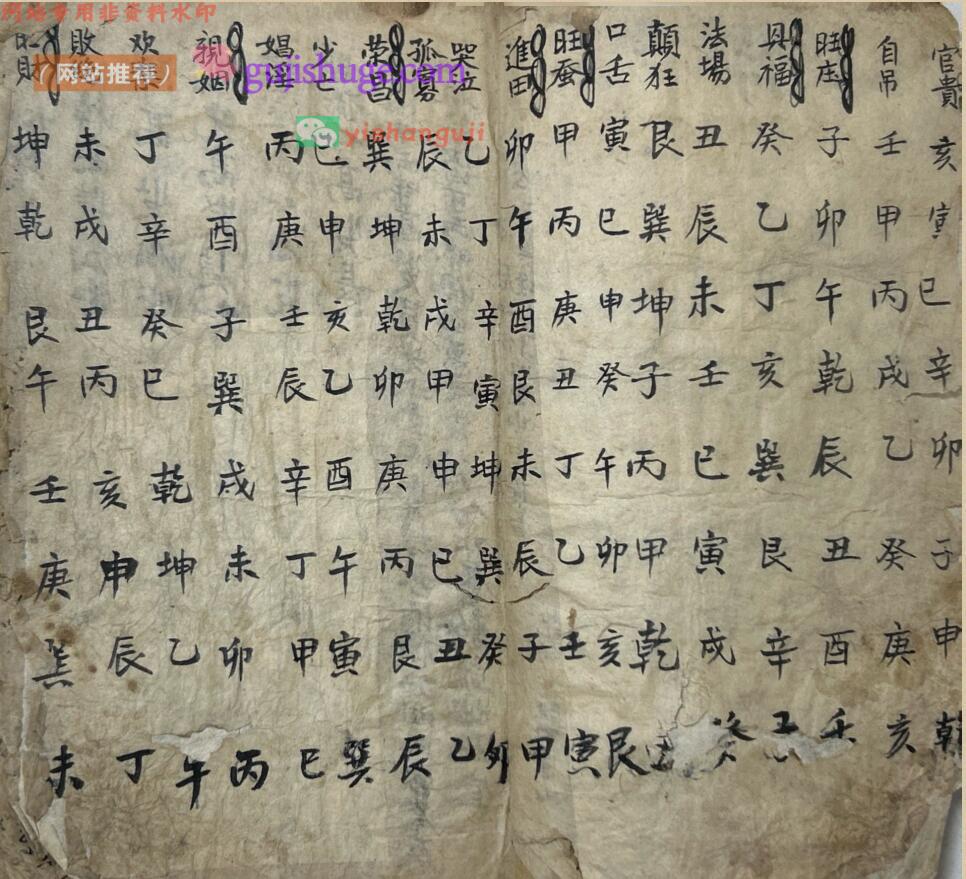 网站专用非资料水印
(网站推荐)
gujishuge.com
yishanguji
官貴亥寅巳辛卯子申乾
自吊壬甲丙戌乙癸庚亥
旺庄子卯午乾辰丑酉壬
具福癸乙丁亥巽艮辛
法場丑辰未壬巳寅戌
顛狂艮巽坤子丙甲乾丑
口舌寅巳申癸午卯亥艮
旺蚕甲丙庚丑丁乙壬寅
進田卯午酉艮未辰子甲
哭泣乙丁辛寅坤巽癸卯
孤寡辰未戌甲申巳丑乙
荣昌巽坤乾卯庚丙艮辰
少亡巳申亥乙酉午寅巽
娼淫丙庚壬辰辛丁甲巳
親姻午酉子巽戌未卯丙
欢丁辛癸巳乾坤乙午
敗未戌丑丙亥申辰丁
旺財坤乾艮午壬庚巽未